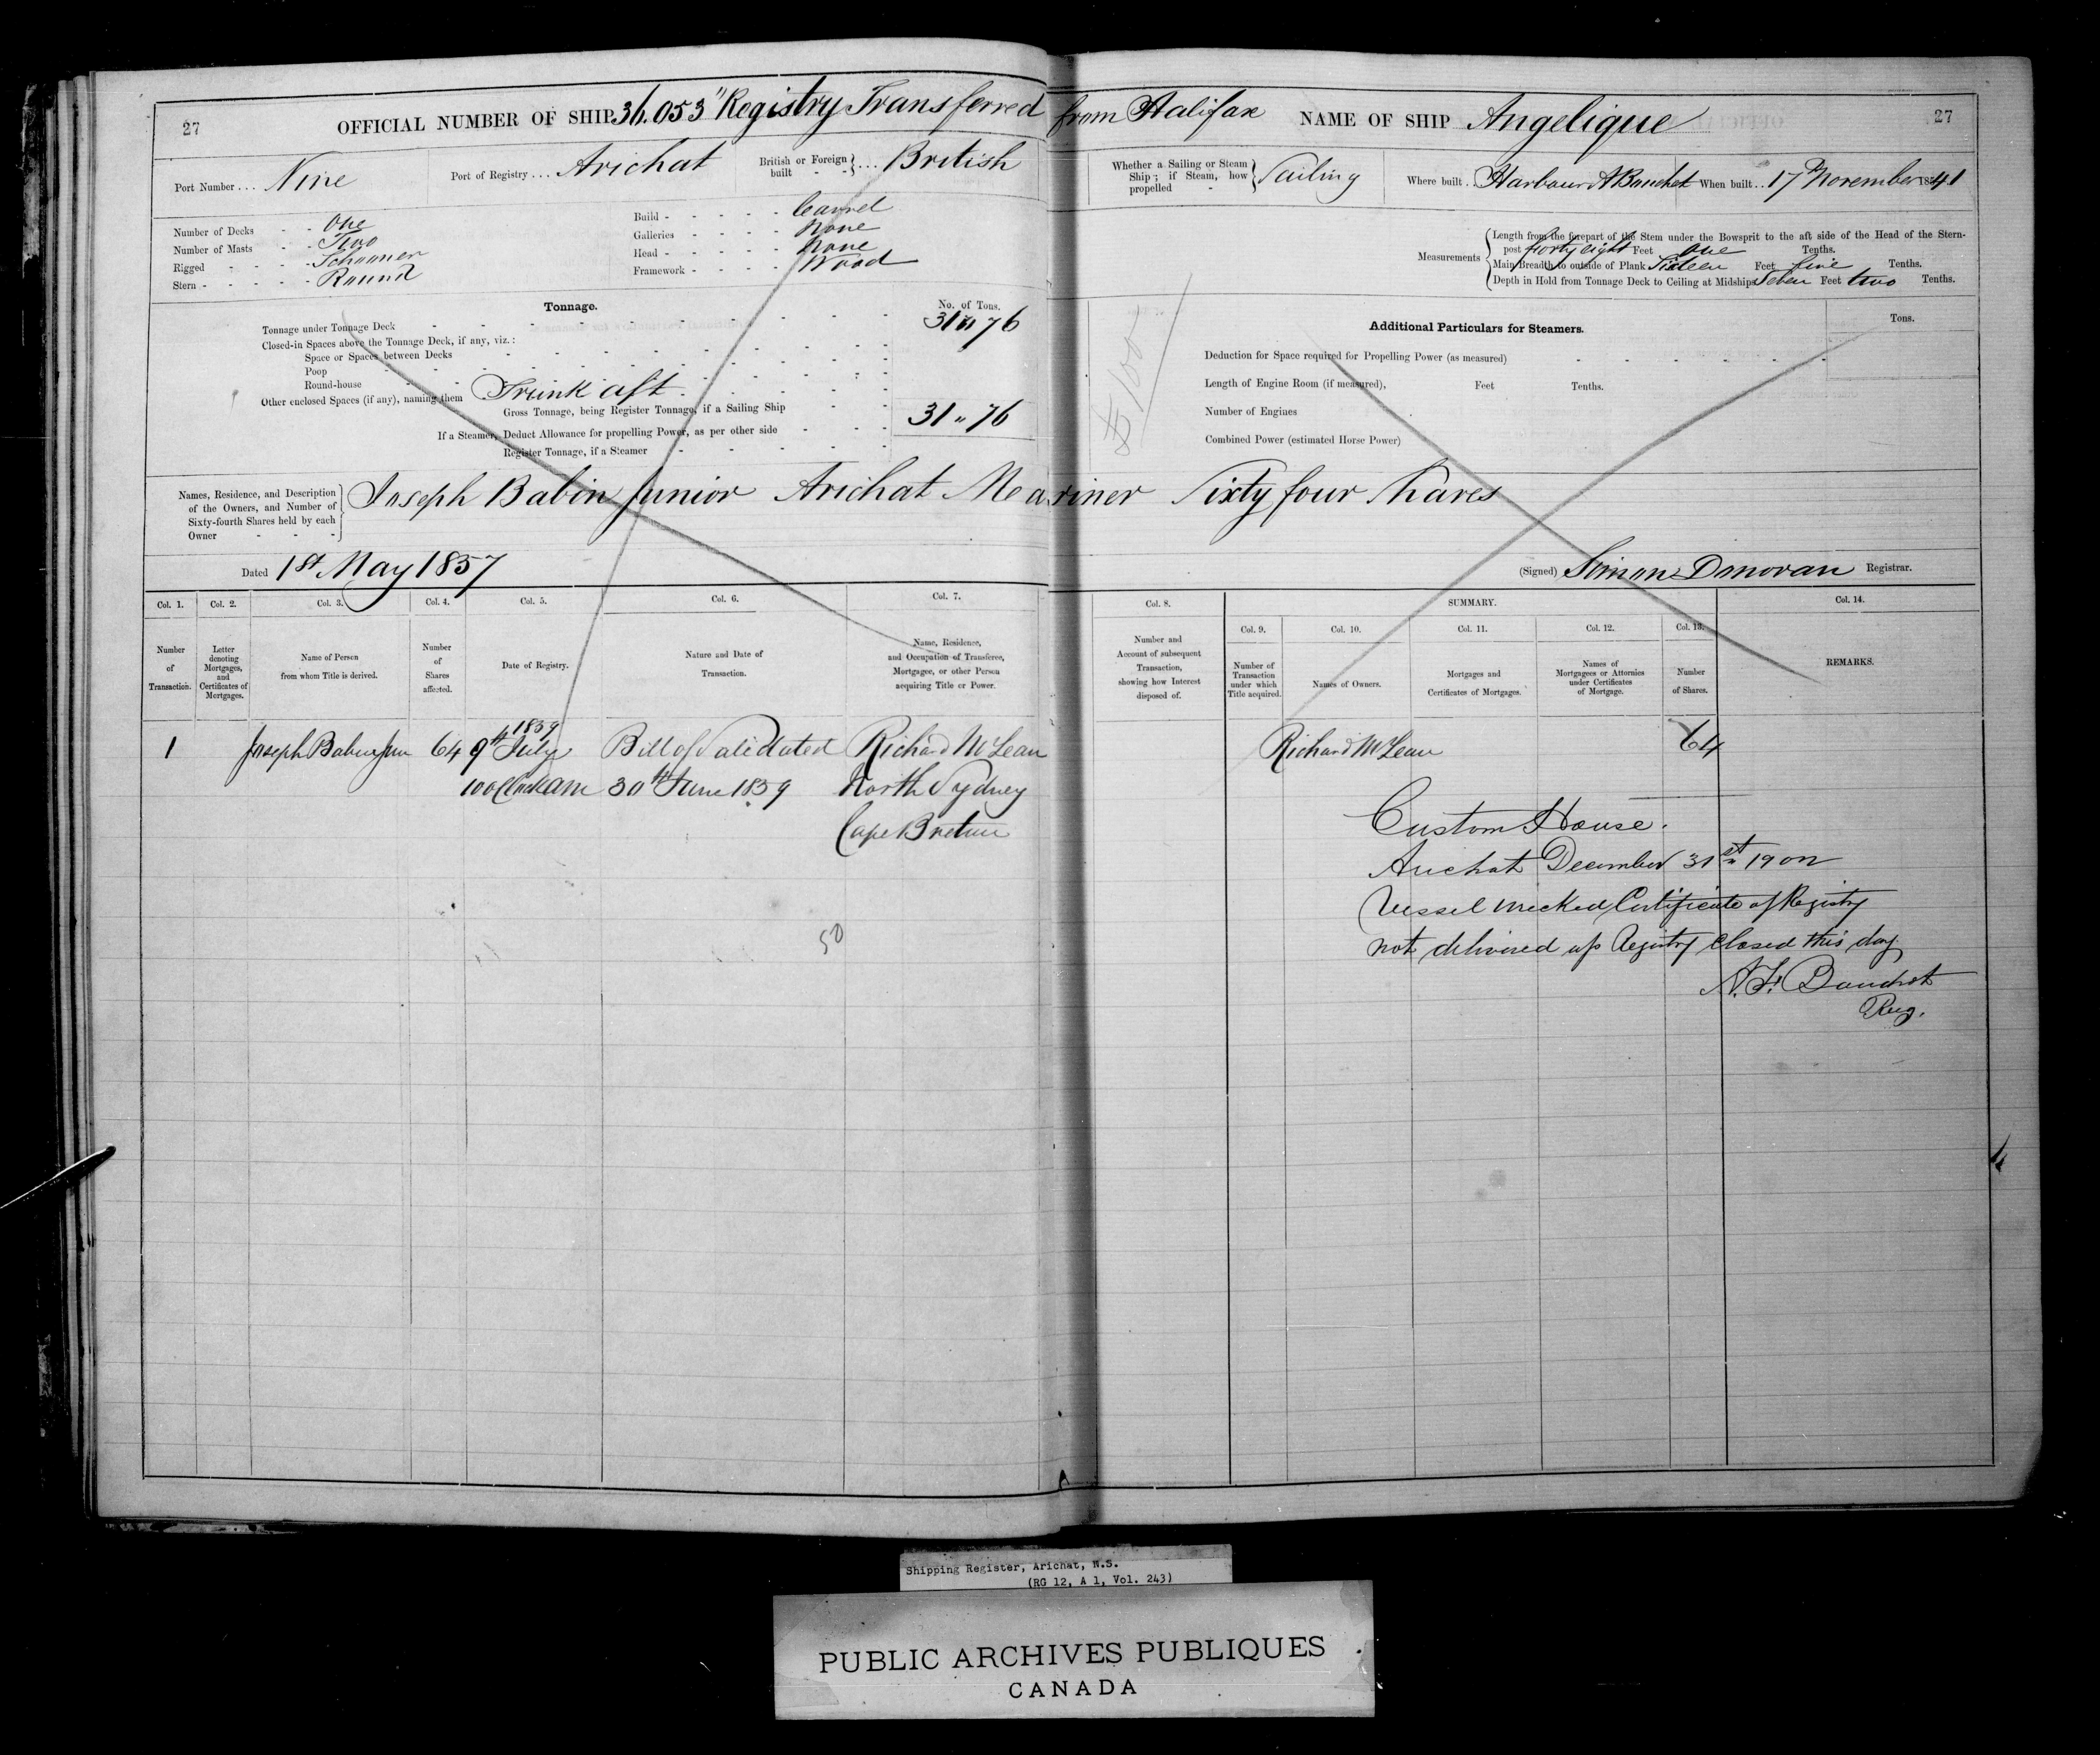 27 OFFICIAL NUMBER OF SHIP 36.053 "Registry Transferred from Halifax NAME OF SHIP Angelique 27
Port Number... Nine Port of Registry... Arichat British or Foreign built - - } ... British Whether a Sailing or Steam Ship; if Steam, how propelled - } Sailing Where built.. Harbour A Bouchet When built.. 17th November 1841
Number of Decks - - One
Number of Masts - - Two
Rigged - - - - Schooner
Stern - - - - - Round
Build - - - - - Carvel
Galleries - - - - None
Head - - - - - None
Framework - - - - Wood
Measurements { Length from the forepart of the Stem under the Bowsprit to the aft side of the Head of the Stern-
post forty eight Feet One Tenths.
Main Breadth to outside of Plank Sixteen Feet five Tenths.
Depth in Hold from Tonnage Deck to Ceiling at Midships Seven Feet two Tenths.
Tonnage. No. of Tons.
Tonnage under Tonnage Deck 31 " 76
Closed-in Spaces above the Tonnage Deck, if any, viz.:
Space or Spaces between Decks
Poop
Round-house
Other enclosed Spaces (if any), naming them Trunk aft
Gross Tonnage, being Register Tonnage, if a Sailing Ship 31 " 76
If a Steamer, Deduct Allowance for propelling Power, as per other side
Register Tonnage, if a Steamer
Additional Particulars for Steamers. Tons.
Deduction for Space required for Propelling Power (as measured)
Length of Engine Room (if measured), Feet Tenths.
Number of Engines
Combined Power (estimated Horse Power)
Names, Residence, and Description of the Owners, and Number of Sixty-fourth Shares held by each Owner - - - } Joseph Babin Junior Arichat Mariner Sixty four Shares
Dated 1st May 1857 (Signed) Simon Donovan Registrar.
Col. 1. Col. 2. Col. 3. Col. 4. Col. 5. Col. 6. Col. 7. Col. 8. SUMMARY. Col. 14.
Col. 9. Col. 10. Col. 11. Col. 12. Col. 13.
Number of Transaction.
Letter denoting Mortgages, and Certificates of Mortgages.
Name of Person from whom Title is derived.
Number of Shares affected.
Date of Registry.
Nature and Date of Transaction.
Name, Residence, and Occupation of Transferee, Mortgagee, or other Person acquiring Title or Power.
Number and Account of subsequent Transaction, showing how Interest disposed of.
Number of Transaction under which Title acquired.
Names of Owners.
Mortgages and Certificates of Mortgages.
Names of Mortgagees or Attornies under Certificates of Mortgage.
Number of Shares.
REMARKS.
1859
1 Joseph Babin Jun 64 9th July Bill of Sale dated Richard McLean Richard McLean 64
10 O Clock am 30th June 1859 North Sydney
Cape Breton
Custom House.
Arichat December 31st 1902
Vessel wrecked Certificate of Registry
not delivered up Registry closed this day
Reg.
50
Shipping Register, Arichat, N.S.
(RG 12, A 1, Vol. 243)
PUBLIC ARCHIVES PUBLIQUES
CANADA